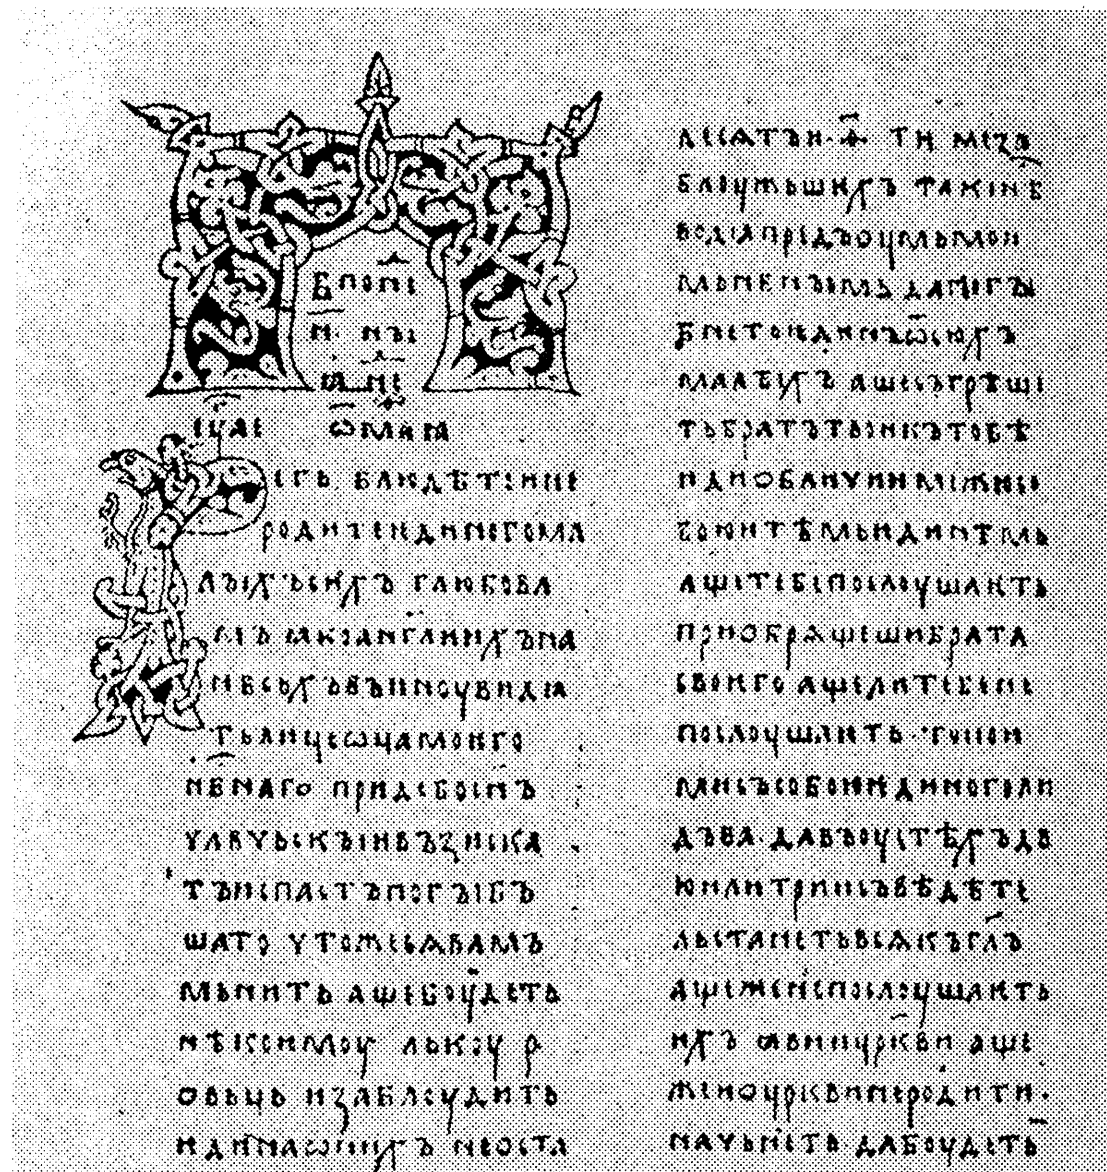 в поне
н. нъі
ꙗ. не
еѵ҃ае ѿ маѳ
гь. блюдѣте и не
родите единого ма
лъіхъ сихъ глю бо ва
мъ ꙗко анг҃ли ихъ на
нбсхъ въіноу видѧ
ть лице ѡца моего
нбнаго приде бо сн҃ъ
члвчьскъі възиска
тъ и спастъ погъібъ
шаго что же сѧ вамъ
мьнить аще боудеть
нѣкоемоу лькоу р
овьць и заблоудить
едина ѡ нихъ не оста
лесѧтъи · ѳ҃ · ти
блоужьшихъ тако нѣ
волꙗ прѣдъ оцмь мои
мь нбнъімь да погъі
бнеть единъ ѿ сихъ
малъіхъ аще съгрѣши
ть братъ твои къ тобѣ
иди обличи и межю со
бою и тѣмь единѣмь
аще тебе послоушаѥть
приобрѧщеши брата
своѥго аще ли тебе не
послоушаѥть · поими
маи съ собою ѥдиного ли
дъва · да въ оустѣхъ дъ
вою или трии съвѣдѣте
ль станеть всѧкъ глъ
аще же не послоушаѥть
ихъ ꙗви цркви аще
же и о цркви неродити ·
начьнеть да боудеть